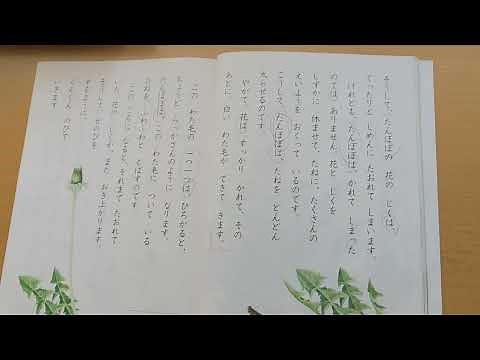 そうして、たんぽぽの 花の じくは、
ぐったりと じめんに たおれて しまいます。
けれども、たんぽぽは、かれて しまった
のでは ありません。花と じくを
しずかに 休ませて、たねに、たくさんの
えいようを おくって いるのです。
こうして、たんぽぽは、たねを どんどん
太らせるのです。
やがて、花は すっかり かれて、その
あとに、白い わた毛が できて きます。
この わた毛の 一つ一つは、ひろがると、
ちょうど らっかさんのように なります。
たんぽぽは、この わた毛に ついて いる
たねを、ふわふわと とばすのです。
この ころに なると、それまで たおれて
いた 花の じくが、また おき上がります。
そうして、せのびを
するように、
ぐんぐん のびて
いきます。